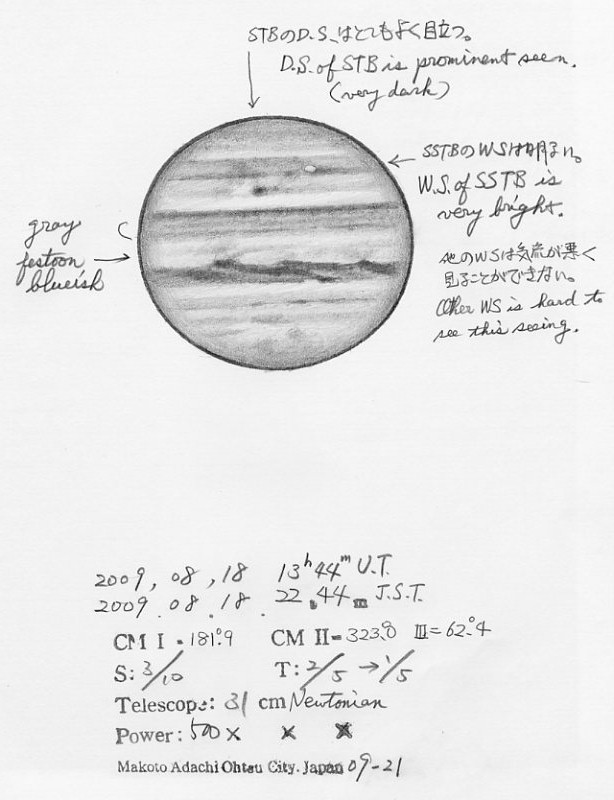 STBのD.S.はとてもよく目立つ。
D.S. of STB is prominent seen.
(very dark)
SSTBのWSは明るい。
W.S. of SSTB is
very bright.
gray
festoon
blueish
他のWSは気流が悪く
見ることができない。
Other WS is hard to
see this seeing.
2009, 08, 18 13h 44m U.T.
2009. 08. 18. 22h 44m J.S.T.
CM I = 181°.9 CM II = 323.°8 III = 62.°4
S: 3/10 T: 2/5 → 1/5
Telescope: 31 cm Newtonian
Power: 500 × × ×
Makoto Adachi Ohtsu City. Japan 09-21